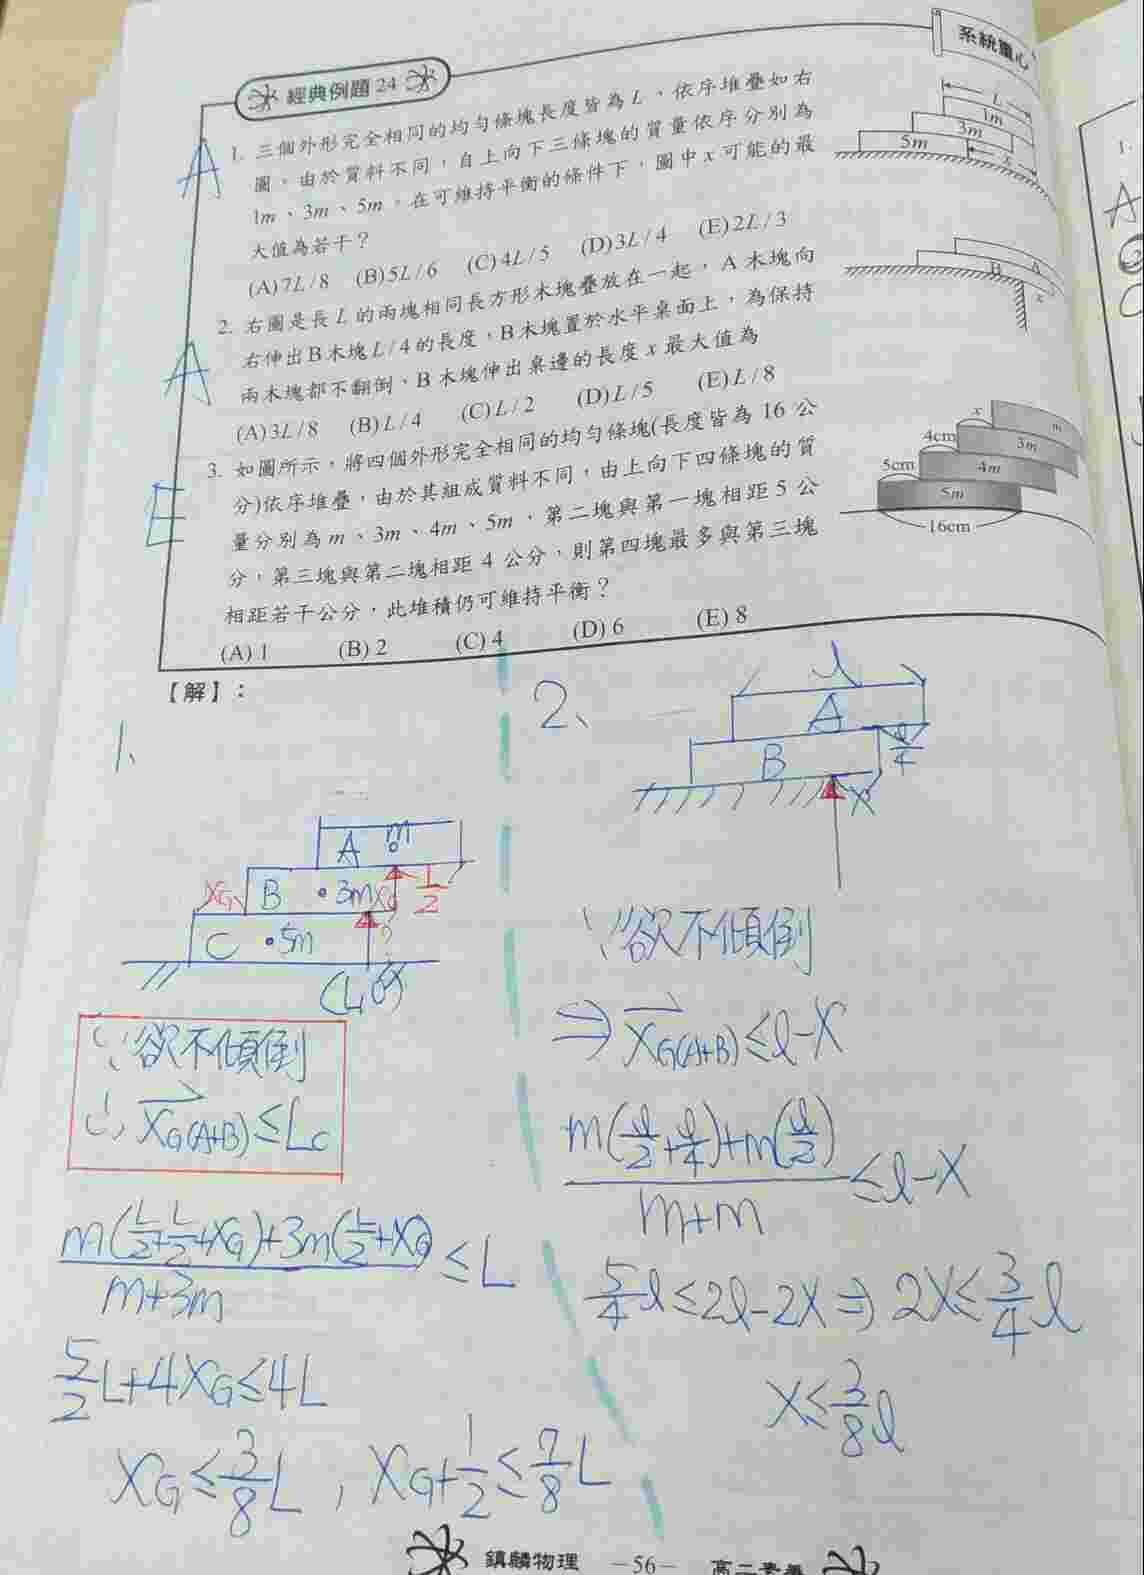 系統重心
經典例題 24
1. 三個外形完全相同的均勻條塊長度皆為 L,依序堆疊如右
圖。由於質料不同,自上向下三條塊的質量依序分別為
1m、3m、5m。在可維持平衡的條件下,圖中 x 可能的最
大值為若干?
(A)7L/8 (B)5L/6 (C)4L/5 (D)3L/4 (E)2L/3
A
L
1m
3m
5m
x
2. 右圖是長 L 的兩塊相同長方形木塊疊放在一起,A 木塊向
右伸出 B 木塊 L/4 的長度,B 木塊置於水平桌面上,為保持
兩木塊都不翻倒、B 木塊伸出桌邊的長度 x 最大值為
(A)3L/8 (B)L/4 (C)L/2 (D)L/5 (E)L/8
A
A
B
x
3. 如圖所示,將四個外形完全相同的均勻條塊(長度皆為 16 公
分)依序堆疊,由於其組成質料不同,由上向下四條塊的質
量分別為 m、3m、4m、5m,第二塊與第一塊相距 5 公
分,第三塊與第二塊相距 4 公分,則第四塊最多與第三塊
相距若干公分,此堆積仍可維持平衡?
(A) 1 (B) 2 (C) 4 (D) 6 (E) 8
E
x
m
4cm
3m
5cm
4m
5m
16cm
【解】:
1、
A m
XG B 3m L/2
C 5m
∵欲不傾倒
∴XG(A+B)≤LC
m(L/2+L/2+XG)+3m(L/2+XG)
m+3m
≤L
5/2L+4XG≤4L
XG≤3/8L,XG+1/2≤7/8L
2、
l
A
B
l/4
X
∵欲不傾倒
⇒XG(A+B)≤l-X
m(l/2+l/4)+m(l/2)
m+m
≤l-X
5/4l≤2l-2X⇒2X≤3/4l
X≤3/8l
1.
A
2
C
鎮麟物理 －56－ 高二